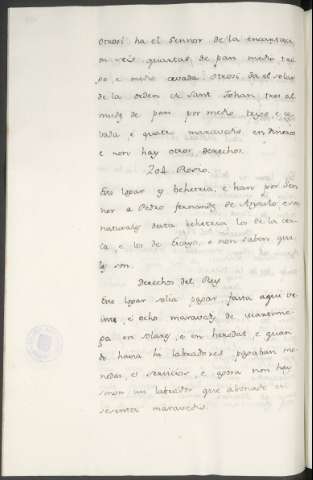 otrosi ha el Sennor de la encartaci
on seis quartas de pan medio tri
go e medio cevada. otrosi da el solar
de la orden de Sant Johan tres al
mudes de pan por medio trigo e ce
vada e quatro maravedis en dineros
e non hay otros derechos.
Rovio.
Este logar es behetria, e han por Sen
nor a Pedro Fernandez de e son
naturales desta behetria los de la cer
ca e los de e non saben qua
les son.
Derechos del Rey
Este logar solia pagar fasta aqui ve
inte e ocho maravedis de
en solares, e en heredat, e quan
do havia hi labradores pagaban mo
nedas, e servicios, e agora non hay
sinon un labrador que abonado en
sesenta maravedis.